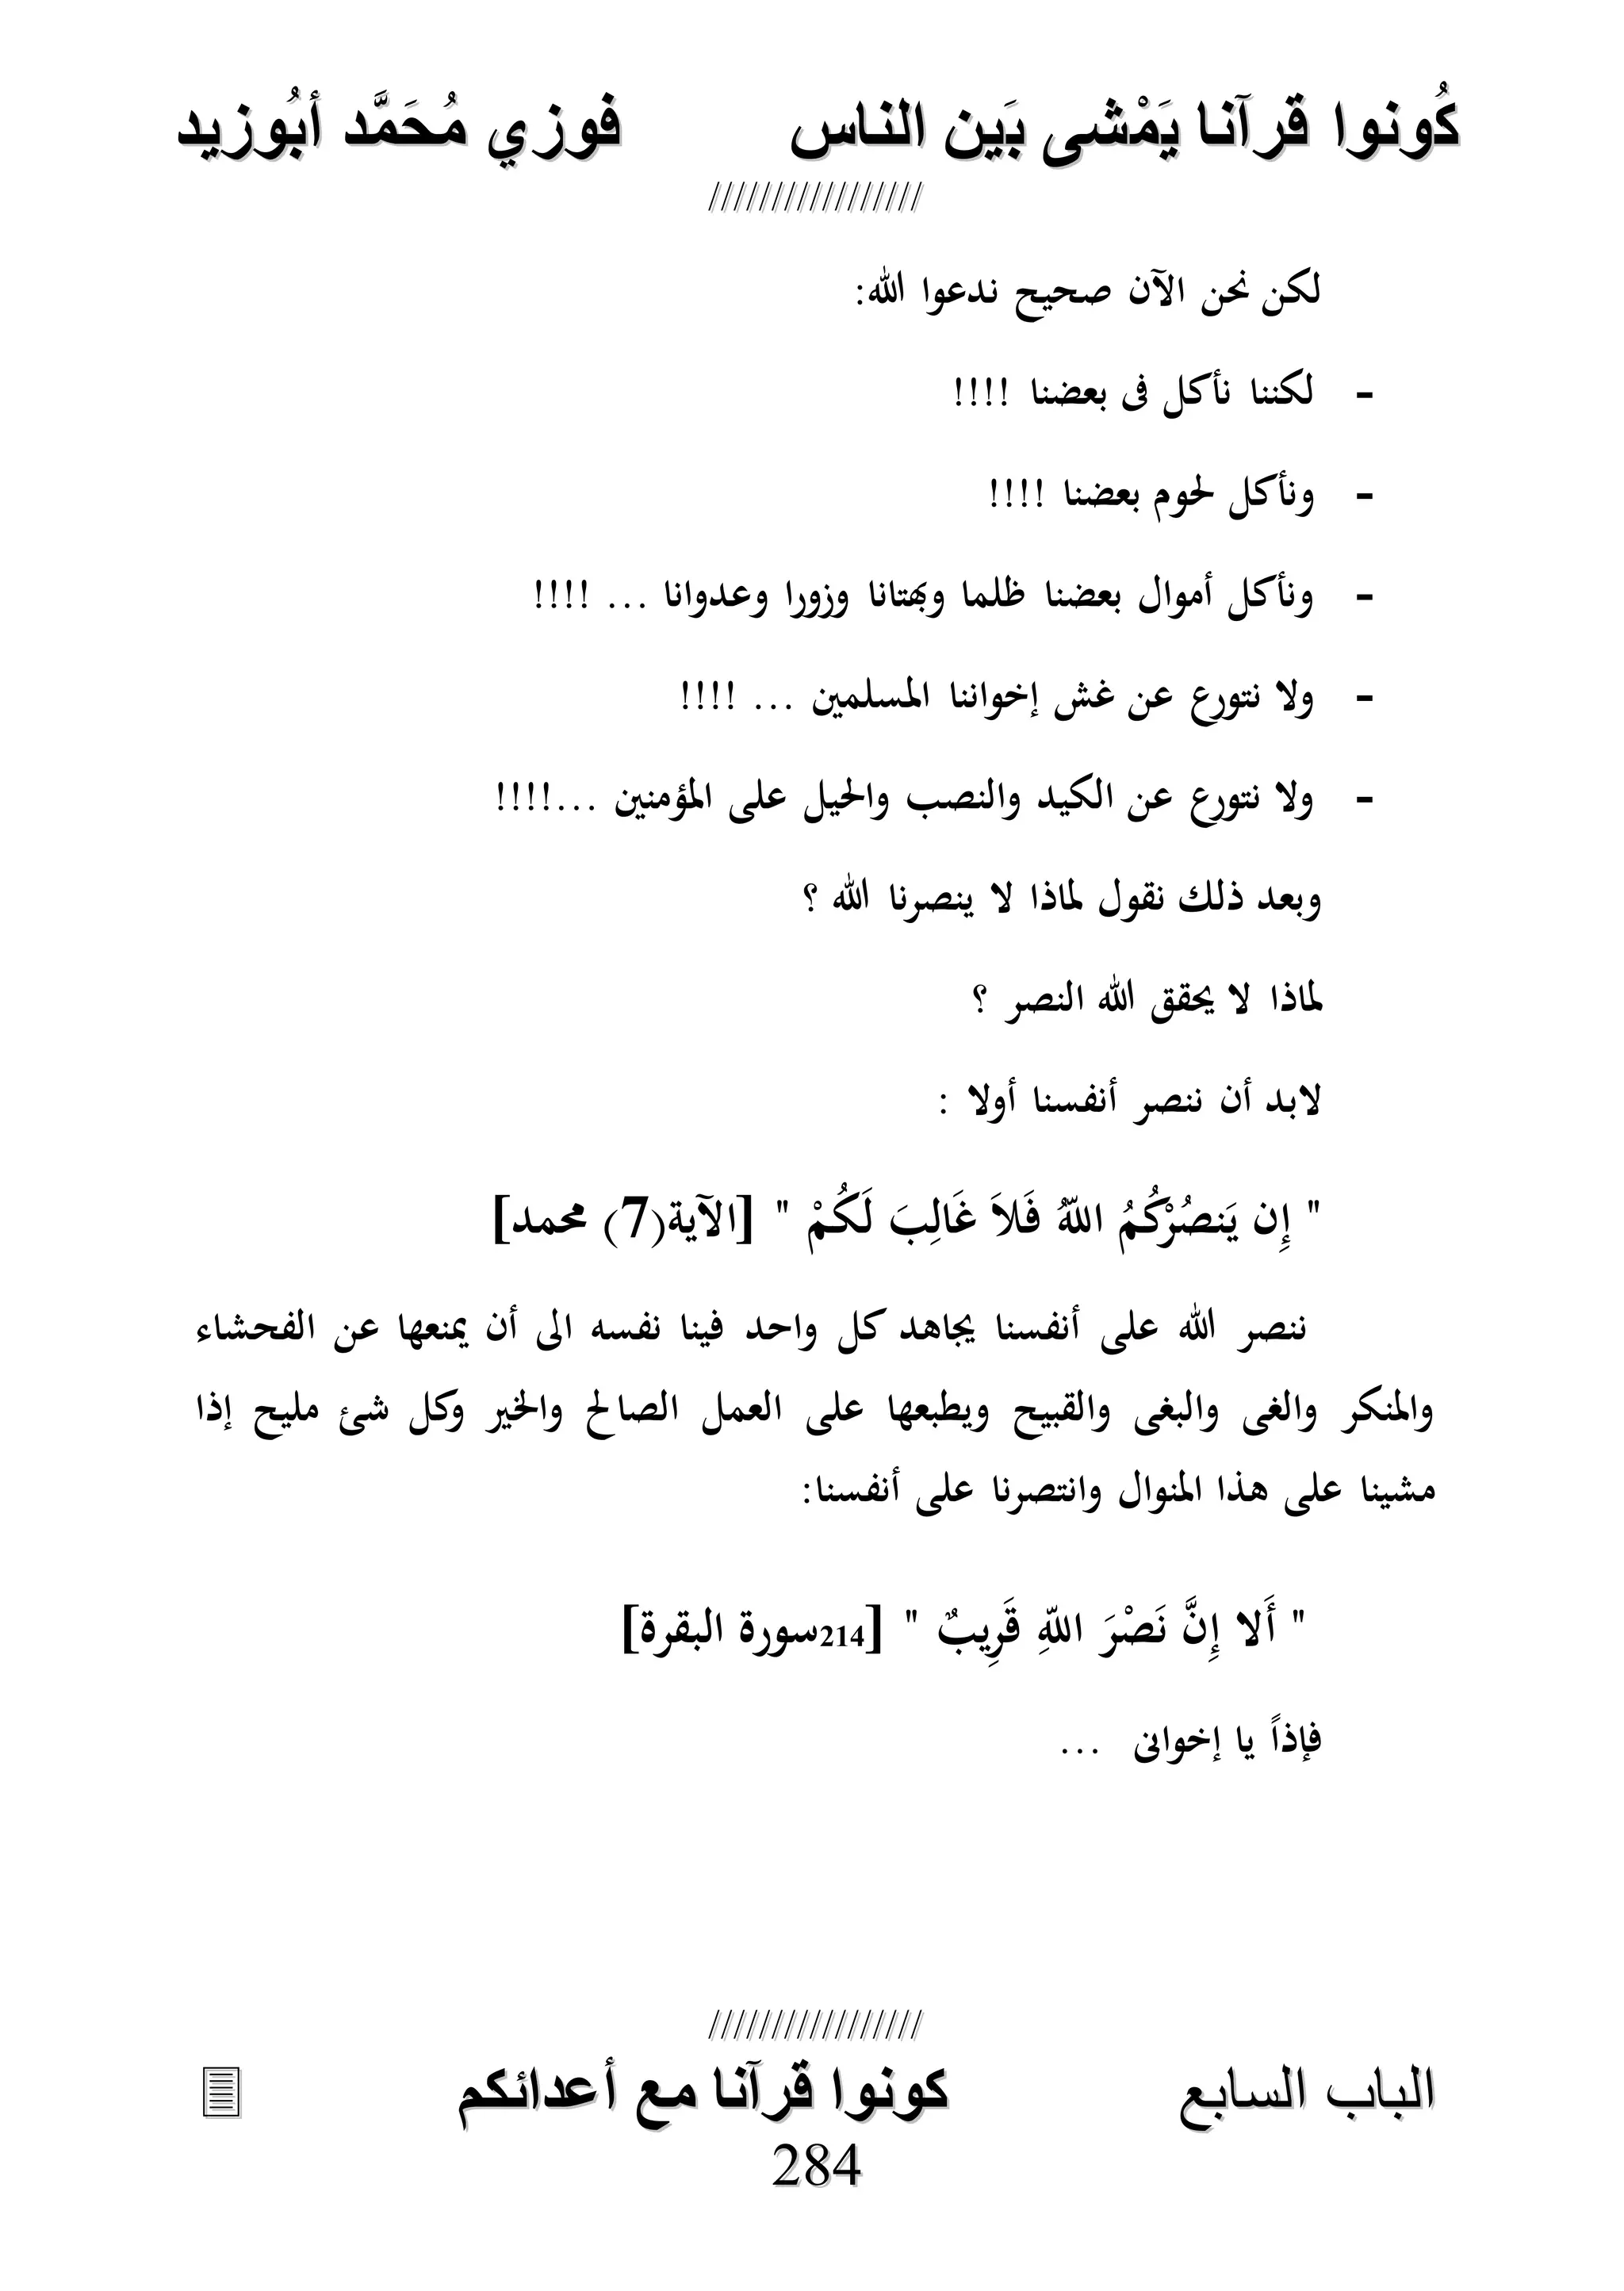 كُونوا قرآنا يَمْشى بَين الناس فوزي مُحَمَّد أبُوزيد
/////////////////
لكن نحن الآن صحيح ندعوا الله:
- لكننا نأكل فى بعضنا !!!!
- ونأكل لحوم بعضنا !!!!
- ونأكل أموال بعضنا ظلما وبهتانا وزورا وعدوانا ... !!!!
- ولا نتورع عن غش إخواننا المسلمين ... !!!!
- ولا نتورع عن الكيد والنصب والحيل على المؤمنين ...!!!!
وبعد ذلك نقول لماذا لا ينصرنا الله ؟
لماذا لا يحقق الله النصر ؟
لابد أن ننصر أنفسنا أولا :
" إِن يَنصُرْكُمُ اللّهُ فَلاَ غَالِبَ لَكُمْ " [الآية(7) محمد]
ننصر الله على أنفسنا يجاهد كل واحد فينا نفسه الى أن يمنعها عن الفحشاء
والمنكر والغى والبغى والقبيح ويطبعها على العمل الصالح والخير وكل شئ مليح إذا
مشينا على هذا المنوال وانتصرنا على أنفسنا:
" أَلا إِنَّ نَصْرَ اللّهِ قَرِيبٌ " [214سورة البقرة]
فإذاً يا إخوانى ...
/////////////////
الباب السابع كونوا قرآنا مع أعدائكم
284